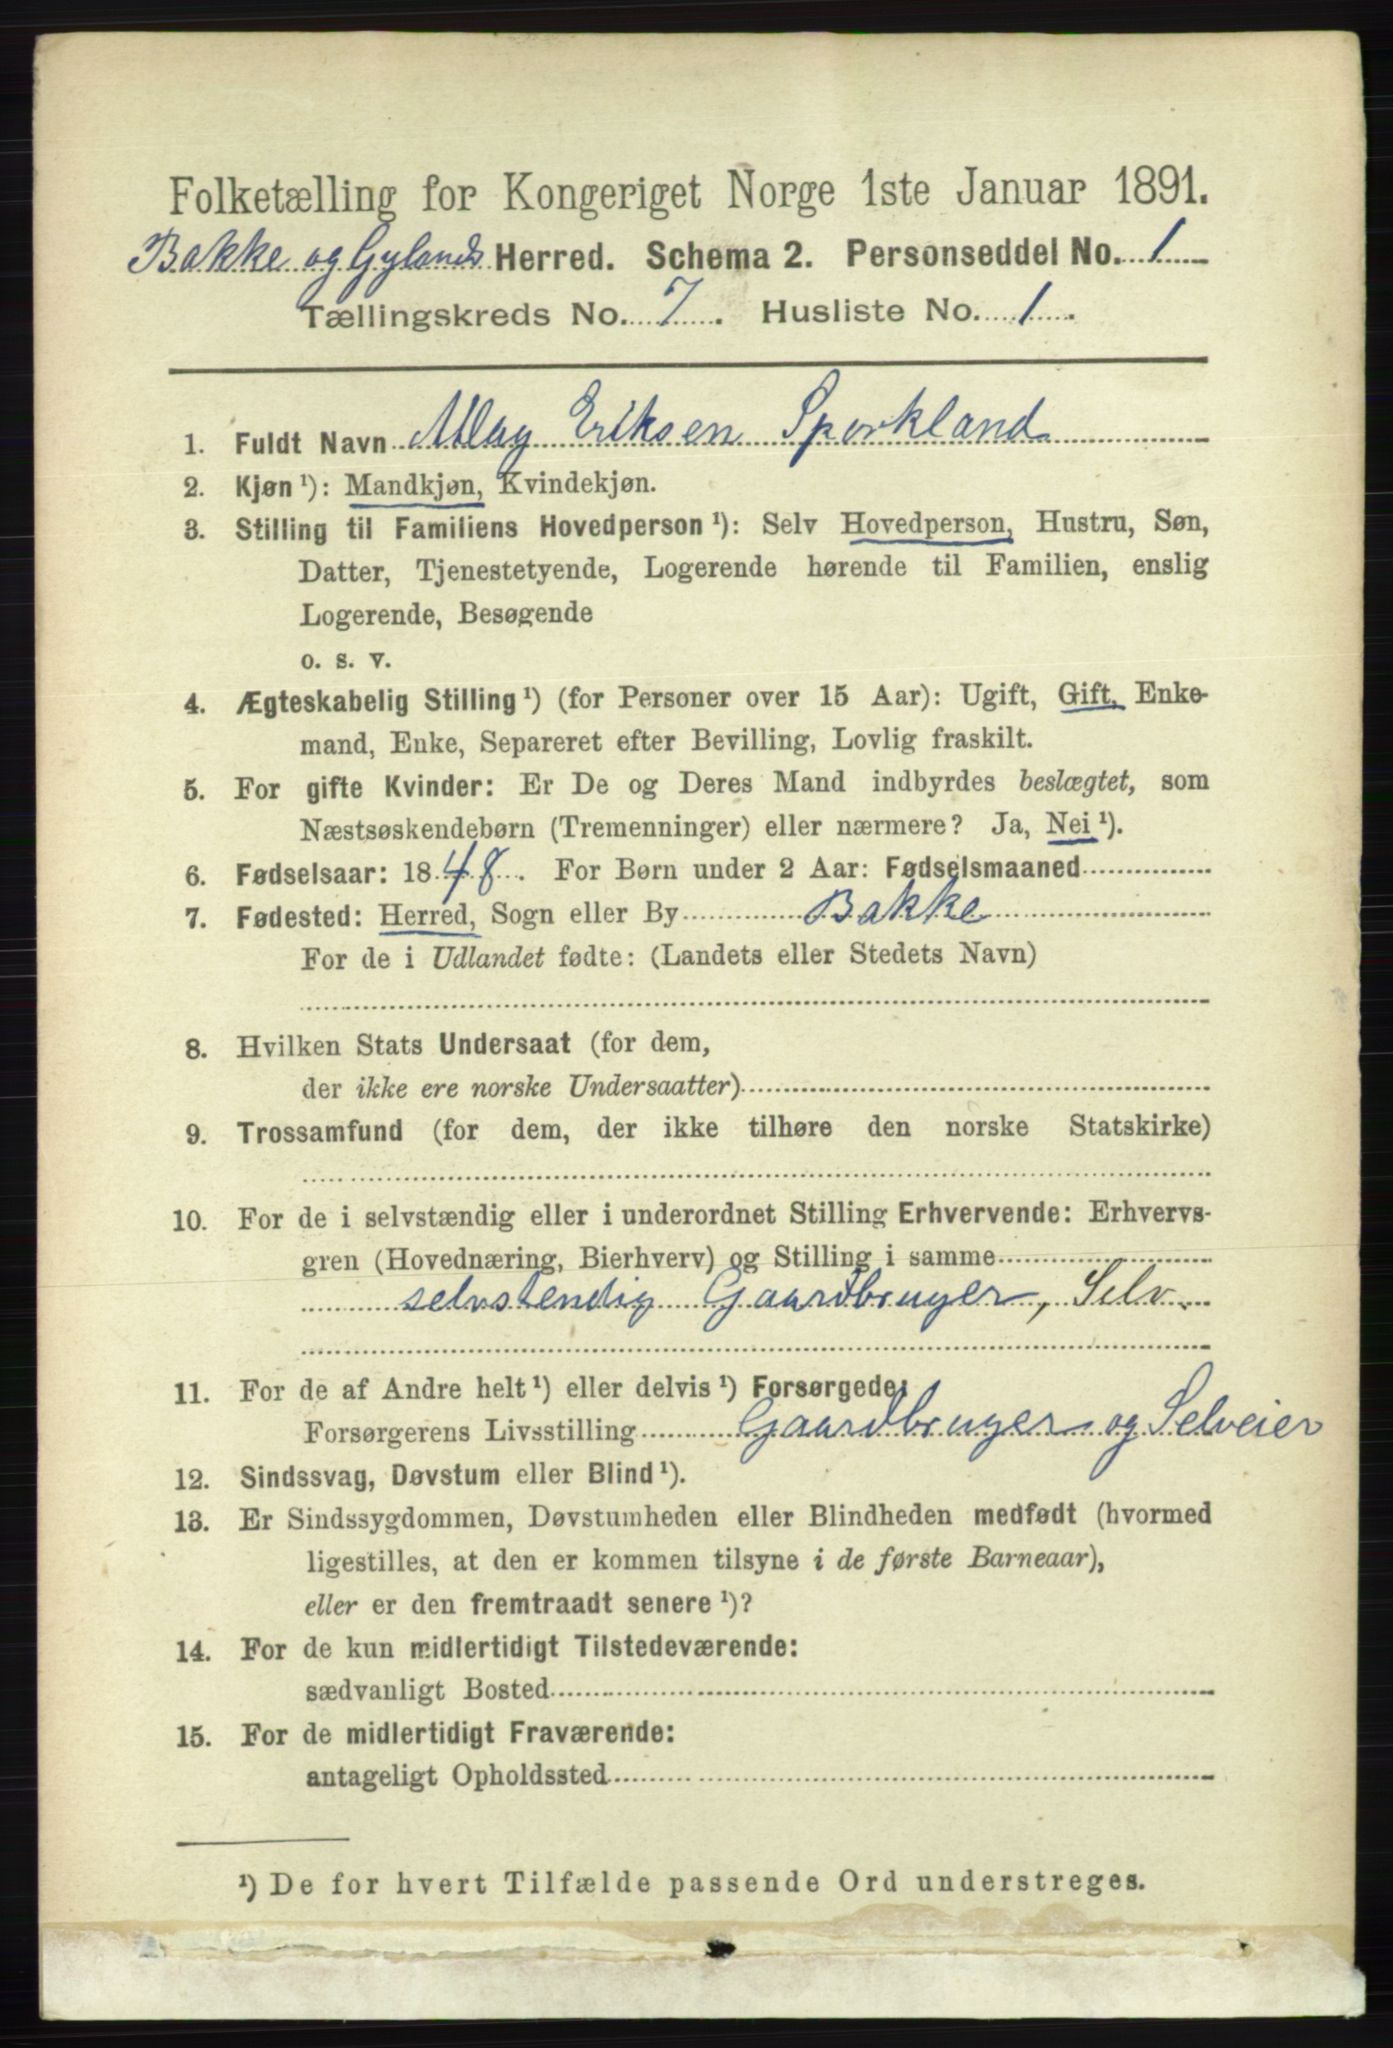 Folketælling for Kongeriget Norge 1ste Januar 1891.
Bakke og Gylands Herred. Schema 2. Personseddel No. 1
Tællingskreds No. 7. Husliste No. 1.
1. Fuldt Navn Eriksen Sporkland
2. Kjøn ¹): Mandkjøn, Kvindekjøn.
3. Stilling til Familiens Hovedperson ¹): Selv Hovedperson, Hustru, Søn,
Datter, Tjenestetyende, Logerende hørende til Familien, enslig
Logerende, Besøgende
o. s. v.
4. Ægteskabelig Stilling ¹) (for Personer over 15 Aar): Ugift, Gift, Enke-
mand, Enke, Separeret efter Bevilling, Lovlig fraskilt.
5. For gifte Kvinder: Er De og Deres Mand indbyrdes beslægtet, som
Næstsøskendebørn (Tremenninger) eller nærmere? Ja, Nei ¹).
6. Fødselsaar: 1848. For Børn under 2 Aar: Fødselsmaaned
7. Fødested: Herred, Sogn eller By Bakke
For de i Udlandet fødte: (Landets eller Stedets Navn)
8. Hvilken Stats Undersaat (for dem,
der ikke ere norske Undersaatter)
9. Trossamfund (for dem, der ikke tilhøre den norske Statskirke)
10. For de i selvstændig eller i underordnet Stilling Erhvervende: Erhvervs-
gren (Hovednæring, Bierhverv) og Stilling i samme
selvstendig Gaardbruger, Selv.
11. For de af Andre helt ¹) eller delvis ¹) Forsørgede:
Forsørgerens Livsstilling Gaardbruger og Selveier
12. Sindssvag, Døvstum eller Blind ¹).
13. Er Sindssygdommen, Døvstumheden eller Blindheden medfødt (hvormed
ligestilles, at den er kommen tilsyne i de første Barneaar),
eller er den fremtraadt senere ¹)?
14. For de kun midlertidigt Tilstedeværende:
sædvanligt Bosted
15. For de midlertidigt Fraværende:
antageligt Opholdssted
¹) De for hvert Tilfælde passende Ord understreges.